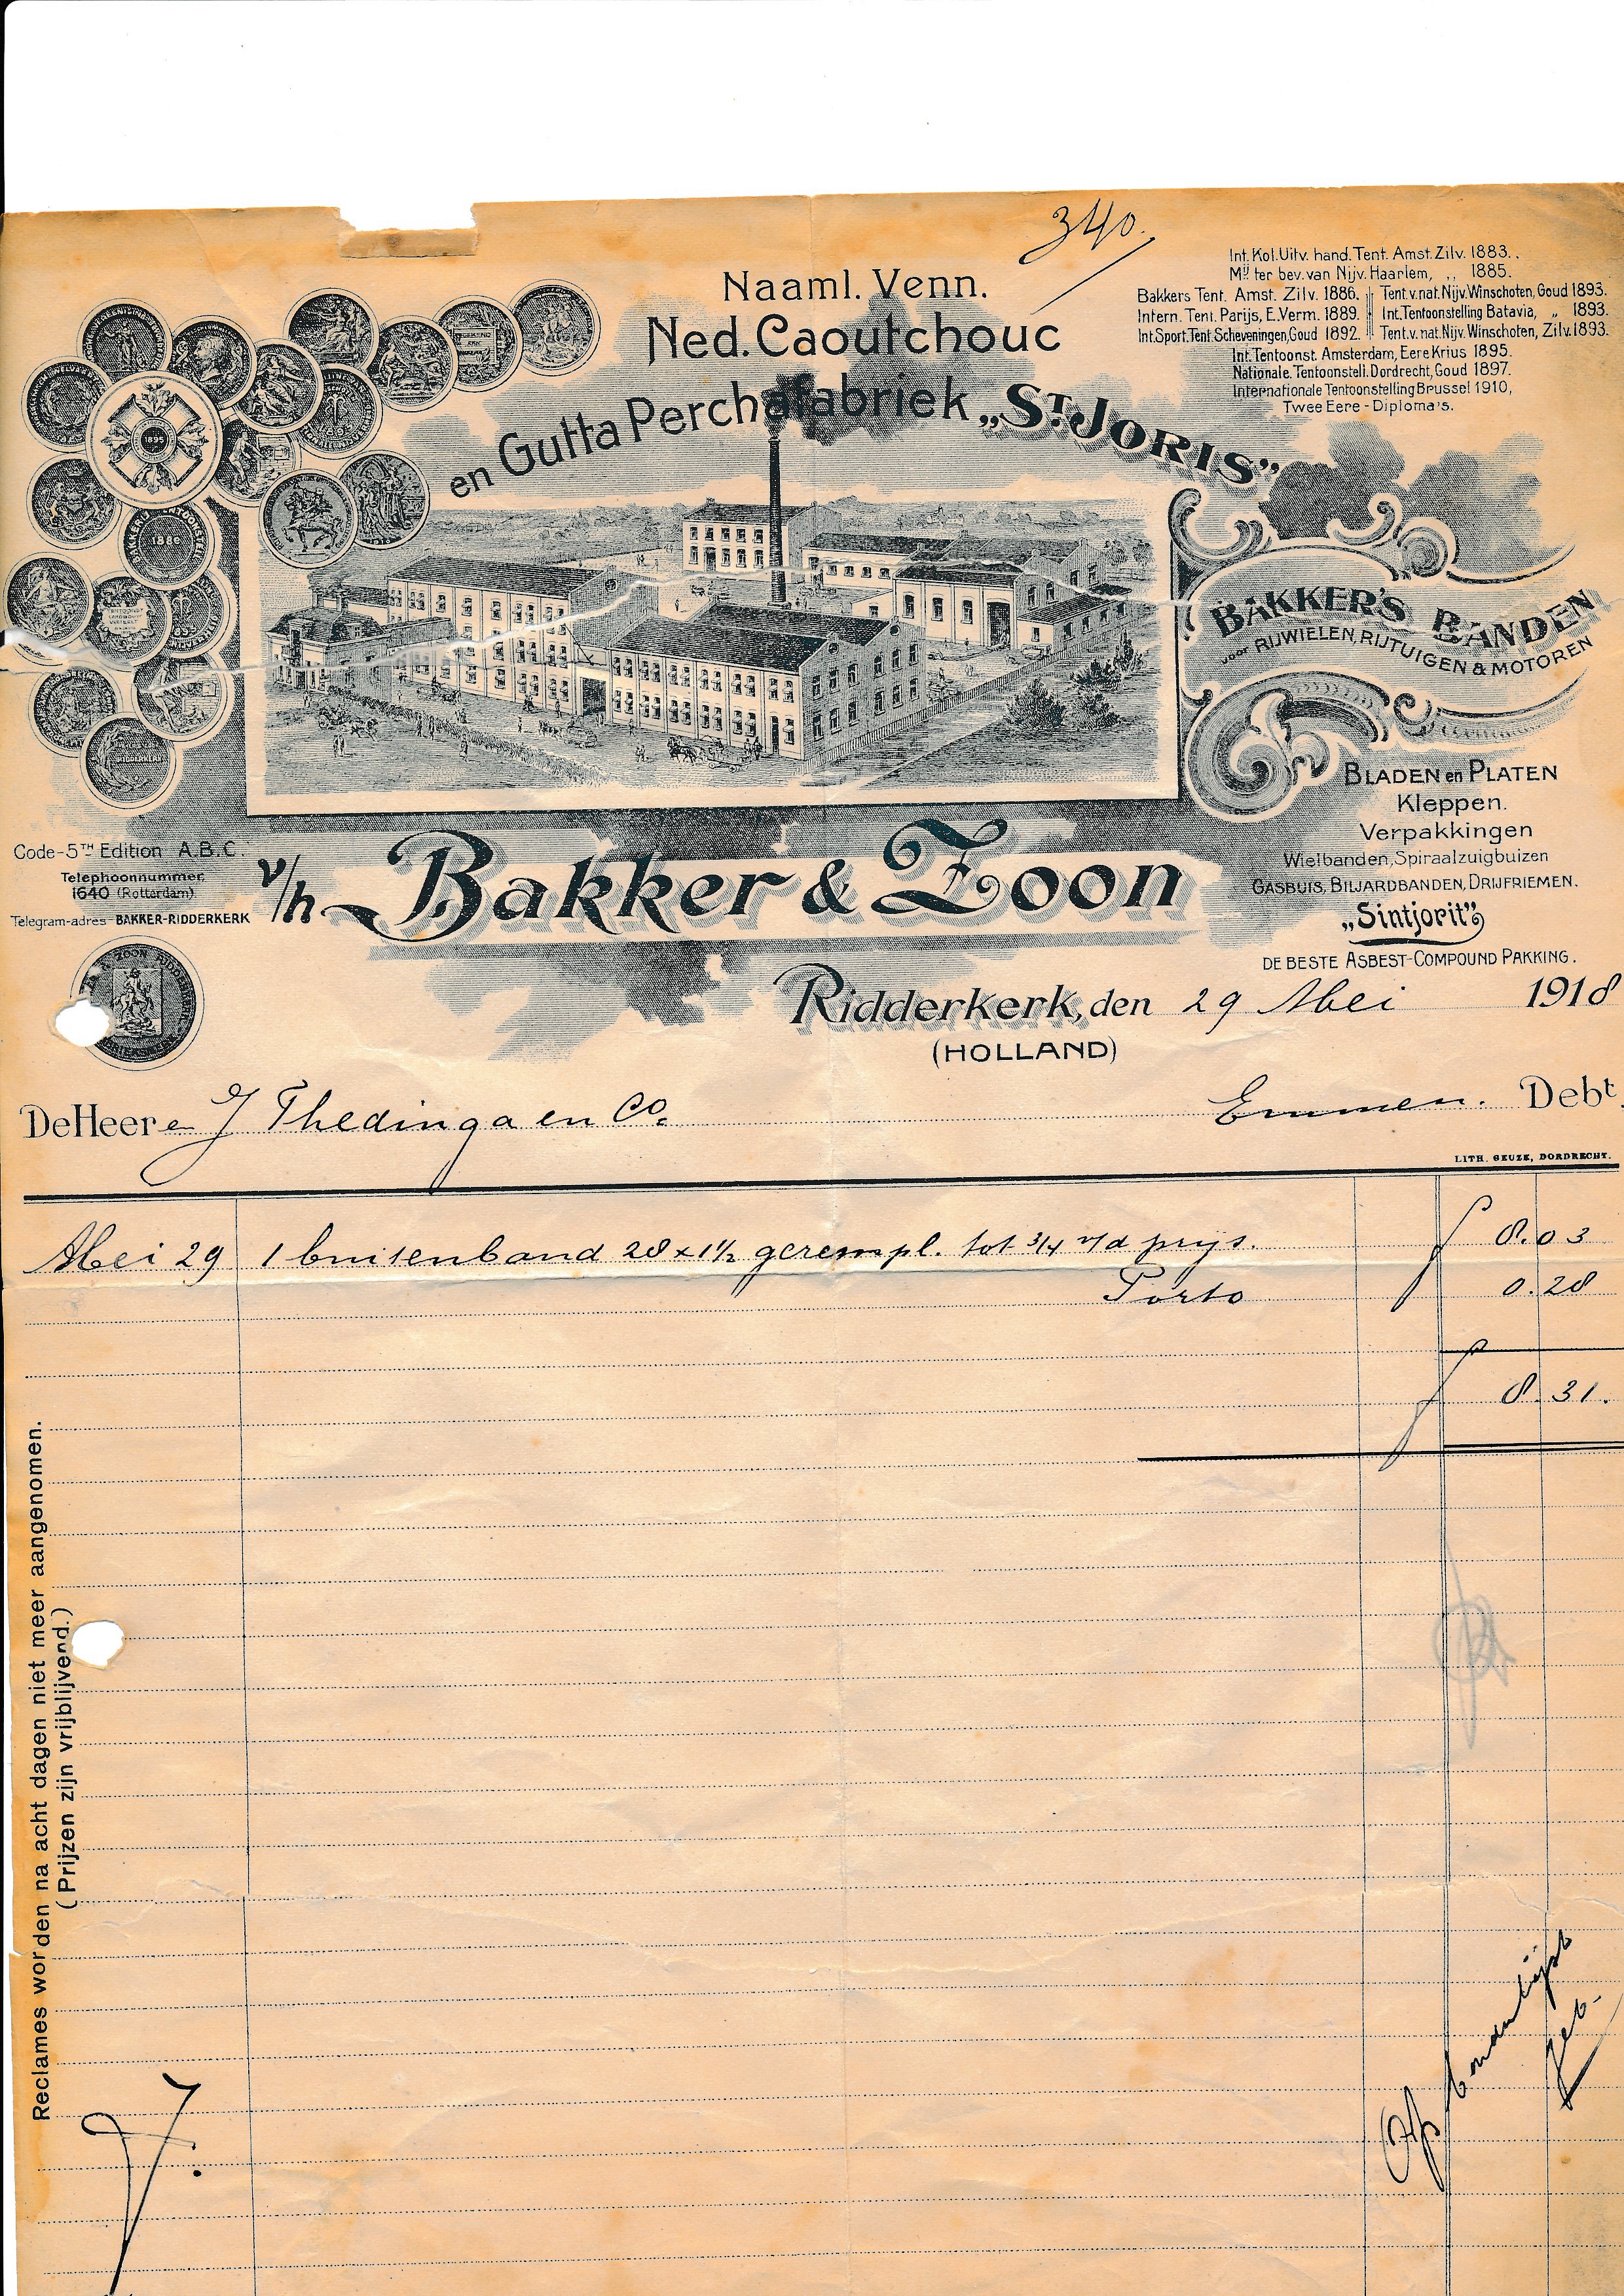 340.
Naaml. Venn.
Ned. Caoutchouc
en Gutta Perchafabriek „St. Joris”
Int. Kol. Uitv. hand. Tent. Amst. Zilv. 1883.
Mij ter bev. van Nijv. Haarlem, „ 1885.
Bakkers Tent. Amst. Zilv. 1886. Tent. v. nat. Nijv. Winschoten, Goud 1893.
Intern. Tent. Parijs, E. Verm. 1889. Int. Tentoonstelling Batavia, „ 1893.
Int. Sport. Tent. Scheveningen, Goud 1892. Tent. v. nat. Nijv. Winschoten, Zilv. 1893.
Int. Tentoonst. Amsterdam, Eere Krius 1895.
Nationale Tentoonstell. Dordrecht, Goud 1897.
Internationale Tentoonstelling Brussel 1910,
Twee Eere-Diploma's.
1895
1886
BAKKER'S BANDEN
voor RIJWIELEN, RIJTUIGEN & MOTOREN
BLADEN en PLATEN
Kleppen.
Verpakkingen
Wielbanden, Spiraalzuigbuizen
GASBUIS, BILJARDBANDEN, DRIJFRIEMEN.
„Sintjorit”
DE BESTE ASBEST-COMPOUND PAKKING.
Code-5TH Edition A.B.C.
Telephoonnummer
1640 (Rotterdam)
Telegram-adres-BAKKER-RIDDERKERK
v/h Bakker & Zoon
Ridderkerk, den 29 Mei 1918
(HOLLAND)
De Heeren J Thedinga en Co. Emmen. Debt.
LITH. GEUZE, DORDRECHT.
Mei 29 1 buitenband 28 x 1½ gerempl. tot ¾ v/d prijs. f 8.03
Porto 0.28
f 8.31.
Reclames worden na acht dagen niet meer aangenomen.
(Prijzen zijn vrijblijvend.)